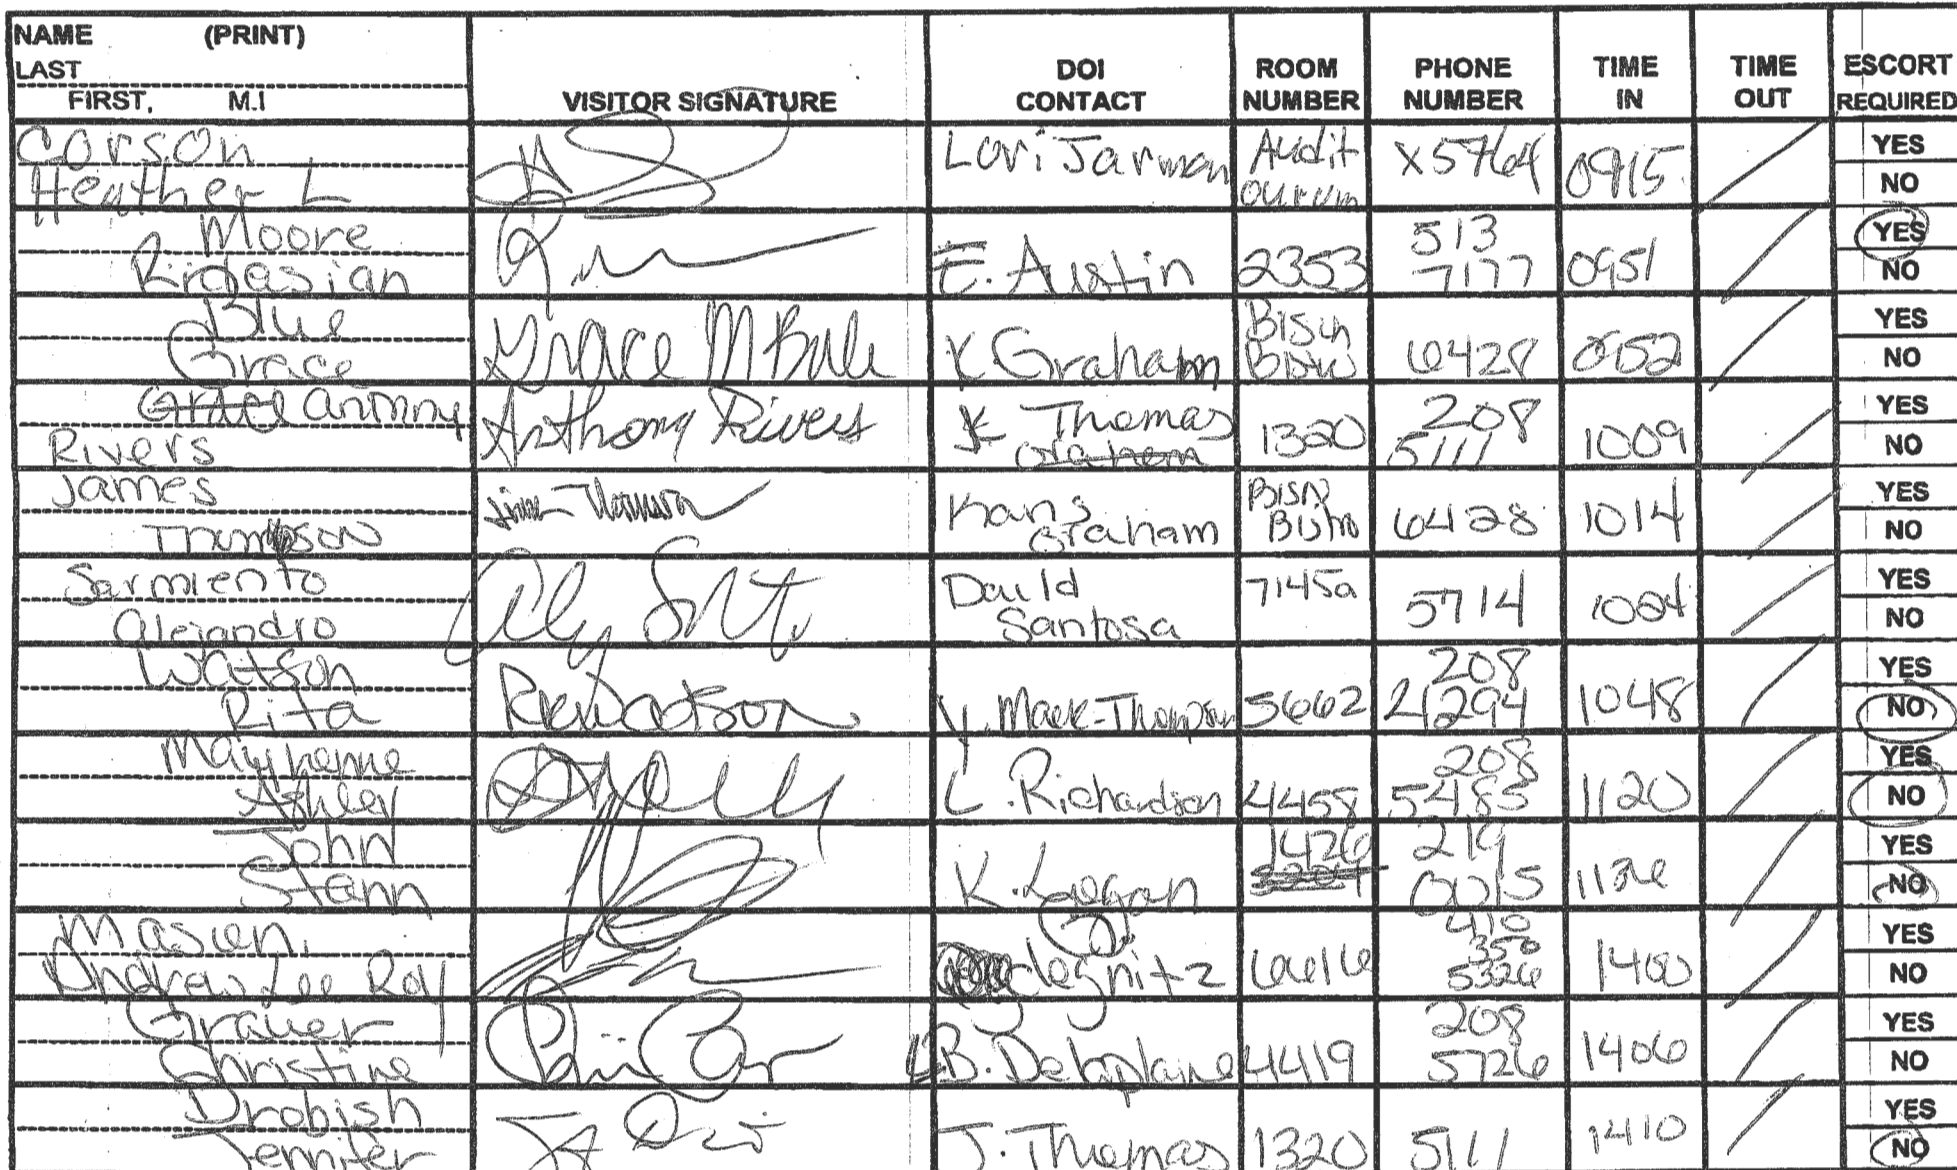 NAME (PRINT)
LAST
FIRST, M.I
VISITOR SIGNATURE
DOI
CONTACT
ROOM
NUMBER
PHONE
NUMBER
TIME
IN
TIME
OUT
ESCORT
REQUIRED
Corson
Heather L
Lori Jarman
Audit
ourum
X5764
0915
YES
NO
Moore
E. Austin
2353
513
7177
0951
YES
NO
Blue
Grace
Grace M Bule
K Graham
6428
0952
YES
NO
Grace
Rivers
Anthony Rivers
K Thomas
Graham
1320
208
5111
1009
YES
NO
James
Thompson
Graham
6428
1014
YES
NO
Sarmiento
Alejandro
David
Santosa
7145a
5714
1024
YES
NO
Watson
Rita
Watson
Y. Mack-Thompson
5662
208
21294
1048
YES
NO
Ashley
L. Richardson
4458
208
5485
1120
YES
NO
John
Stann
K. Logan
1426
219
0015
YES
NO
Andrew Lee Roy
J.
legnitz
6616
410
350
5326
1400
YES
NO
Graver
Christine
B. Delaplane
4419
208
5726
1406
YES
NO
Drobish
Jennifer
J. Thomas
1320
5111
1410
YES
NO